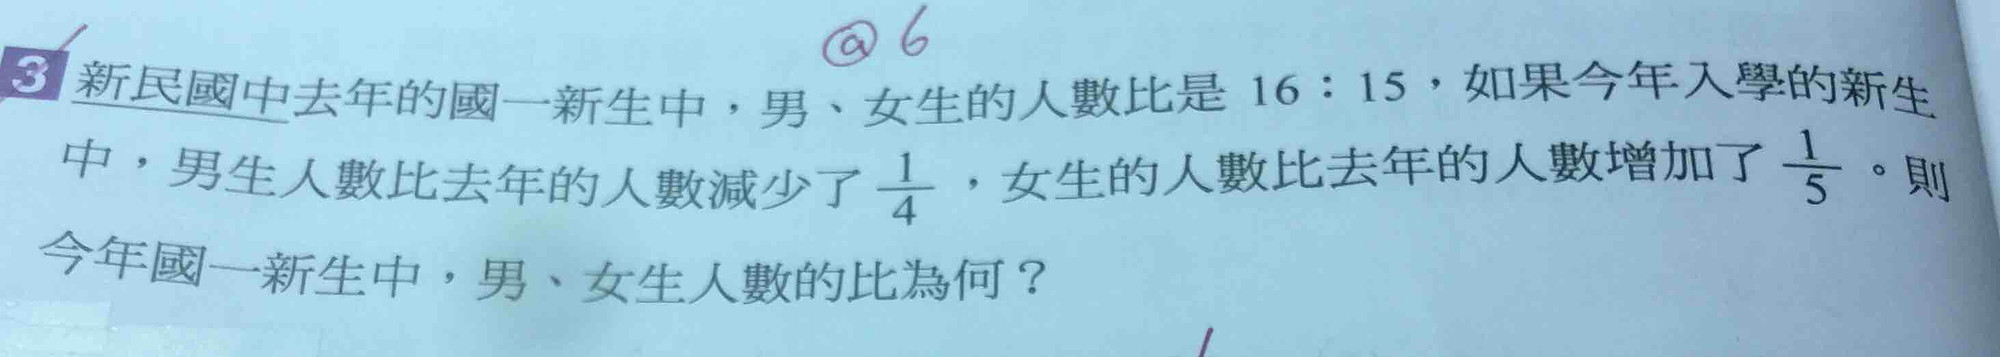 @6
3 新民國中去年的國一新生中，男、女生的人數比是 16：15，如果今年入學的新生
中，男生人數比去年的人數減少了 1/4，女生的人數比去年的人數增加了 1/5。則
今年國一新生中，男、女生人數的比為何？